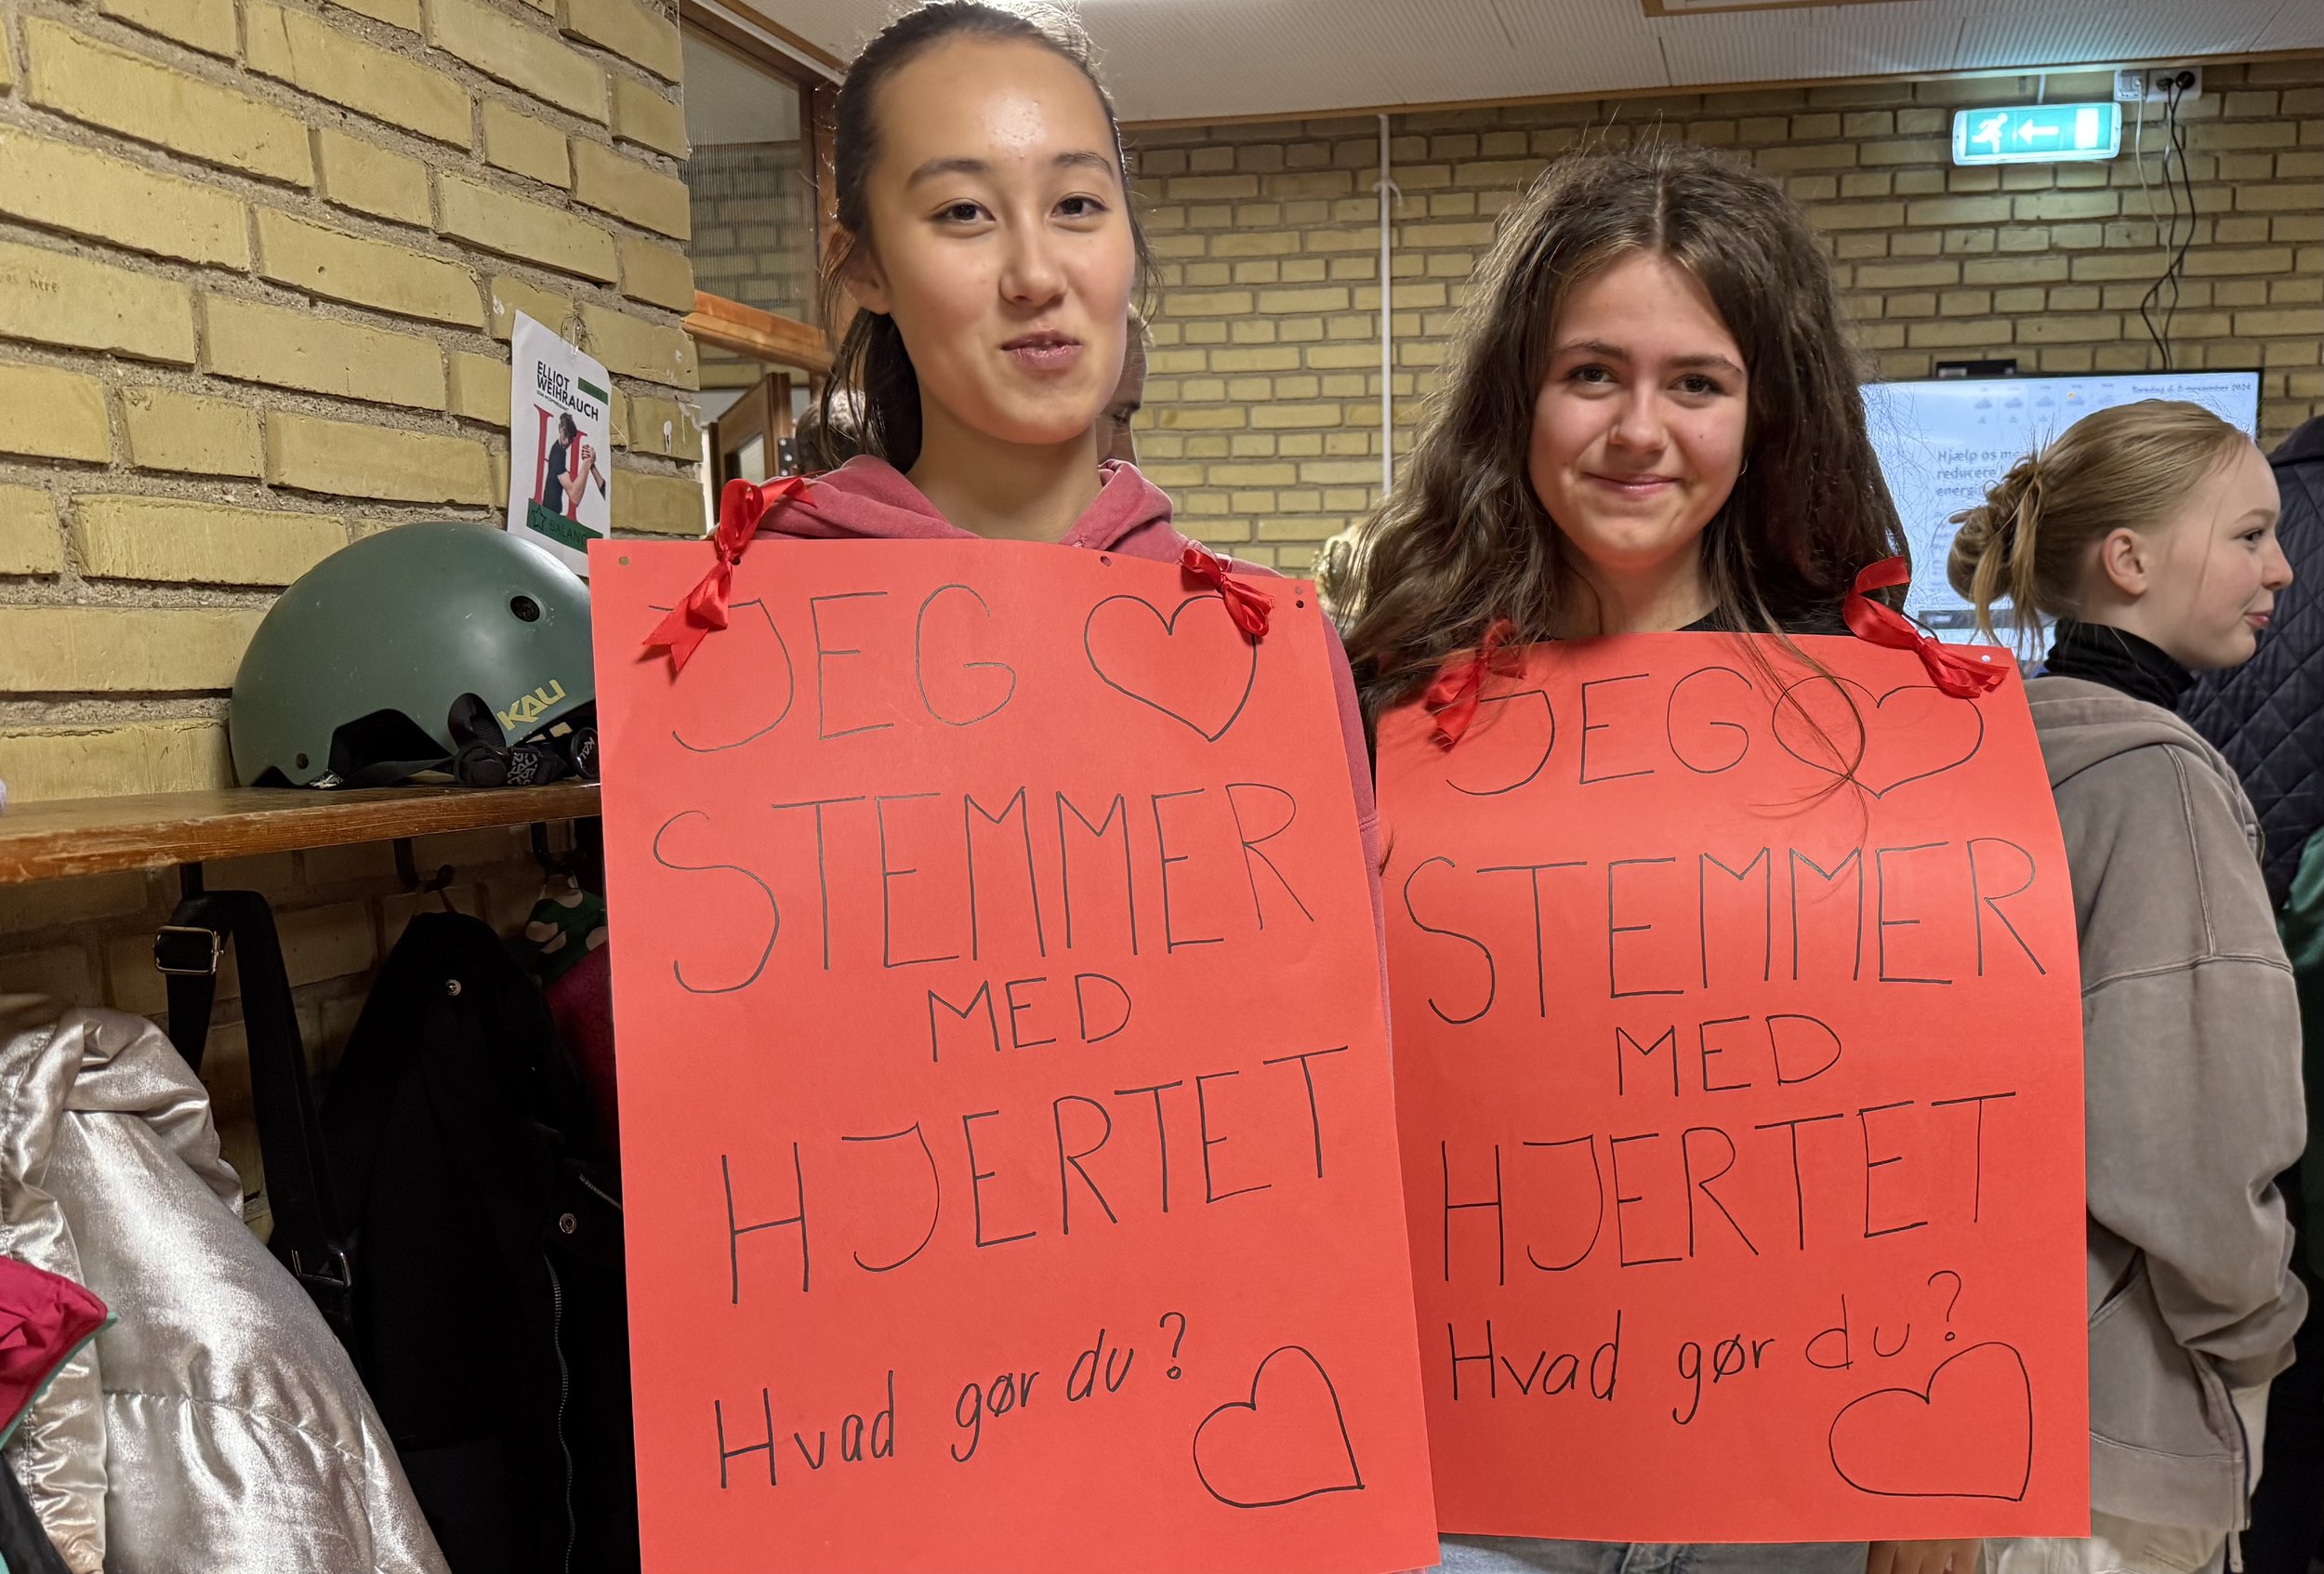 ELLIOT
WEIHRAUCH
BALANC
KALI
JEG
STEMMER
MED
HJERTET
Hvad gør du?
JEG
STEMMER
MED
HJERTET
Hvad gør du?
november 2024
Hjælp os m
reducere
energi
here